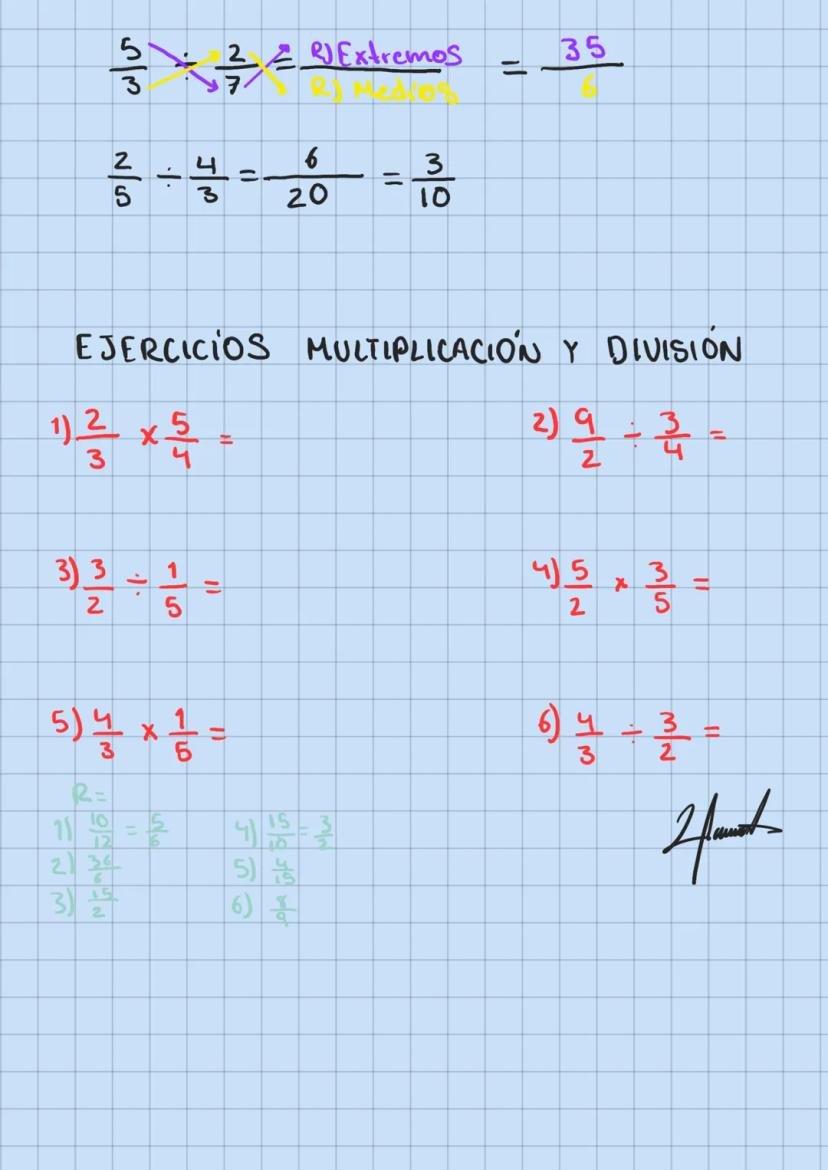 5/3 ÷ 2/7 = R) Extremos / R) Medios = 35/6
2/5 ÷ 4/3 = 6/20 = 3/10
EJERCICIOS MULTIPLICACIÓN Y DIVISIÓN
1) 2/3 x 5/4 =
2) 9/2 ÷ 3/4 =
3) 3/2 ÷ 1/5 =
4) 5/2 x 3/5 =
5) 4/3 x 1/5 =
6) 4/3 ÷ 3/2 =
R=
1) 10/12 = 5/6
2) 36/6
3) 15/2
4) 15/10 = 3/2
5) 4/15
6) 8/9